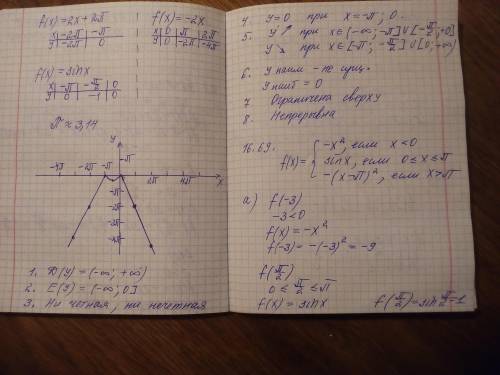 f(x)=2x+2π
x | -2π | -π
y | -2π | 0
f(x)=-2x
x | 0 | π | 2π
y | 0 | -2π | -4π
f(x)=sinx
x | -π | -π/2 | 0
y | 0 | -1 | 0
π≈3,14
y
-4π -2π -π π 2π 4π x
-π
-2π
-3π
-4π
1. D(y)=(-∞; +∞)
2. E(y)=(-∞; 0]
3. Ни четная, ни нечетная
4. y=0 при x=-π; 0.
5. y ↗ при x∈(-∞; -π]∪[-π/2; 0]
y ↘ при x∈[-π; -π/2]∪[0; +∞)
6. y наим - не сущ.
y наиб = 0
7. Ограничена сверху
8. Непрерывна
16.69.
f(x)= { -x², если x<0
sinx, если 0≤x≤π
-(x-π)², если x>π
а) f(-3)
-3<0
f(x)=-x²
f(-3)=-(-3)²=-9
f(π/2)
0≤π/2≤π
f(x)=sinx f(π/2)=sinπ/2=1